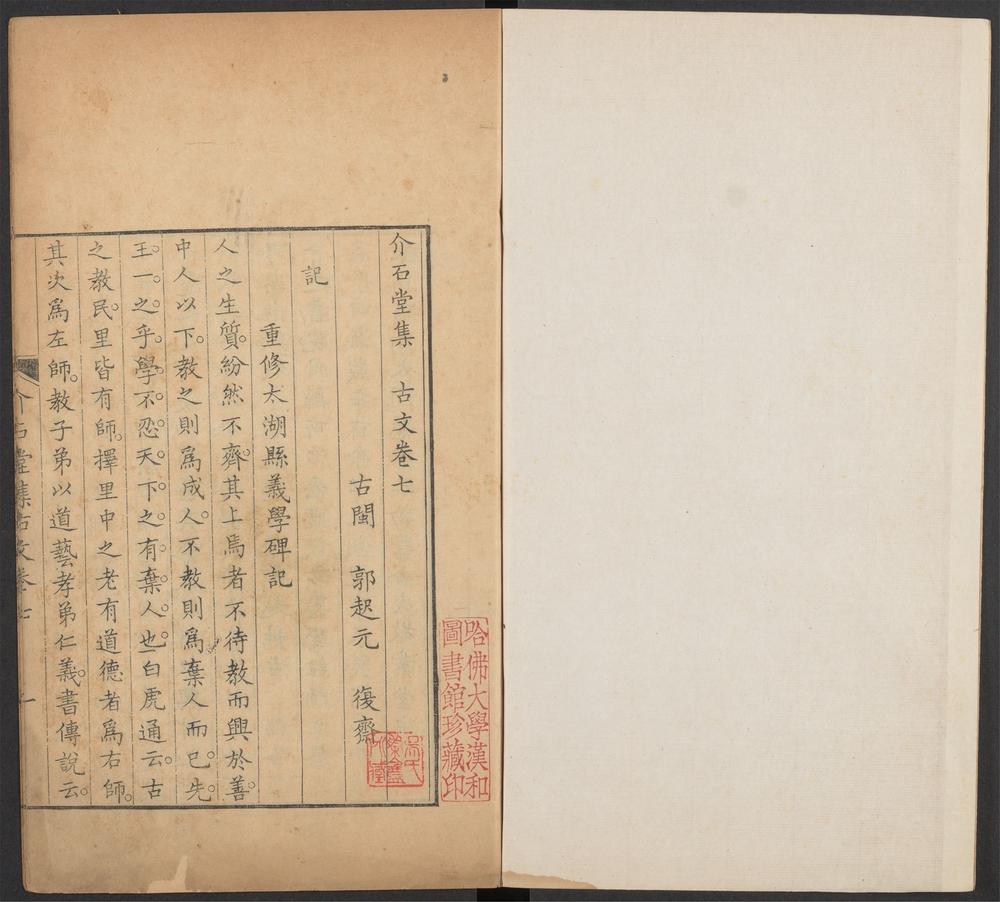 介石堂集 古文卷七
古閩 郭起元 復齋
記
重修太湖縣義學碑記
人之生質。紛然不齊。其上焉者不待教而興於善。
中人以下。教之則爲成人。不教則爲棄人而已。先
王。一。之乎。學。不忍。天下。之。有。棄人。也。白虎通云。古
之教民。里皆有師。擇里中之老有道德者爲右師。
其次爲左師。教子弟以道藝孝弟仁義。書傳說云。
介石堂集古文卷七 一
哈佛大學漢和
圖書館珍藏印